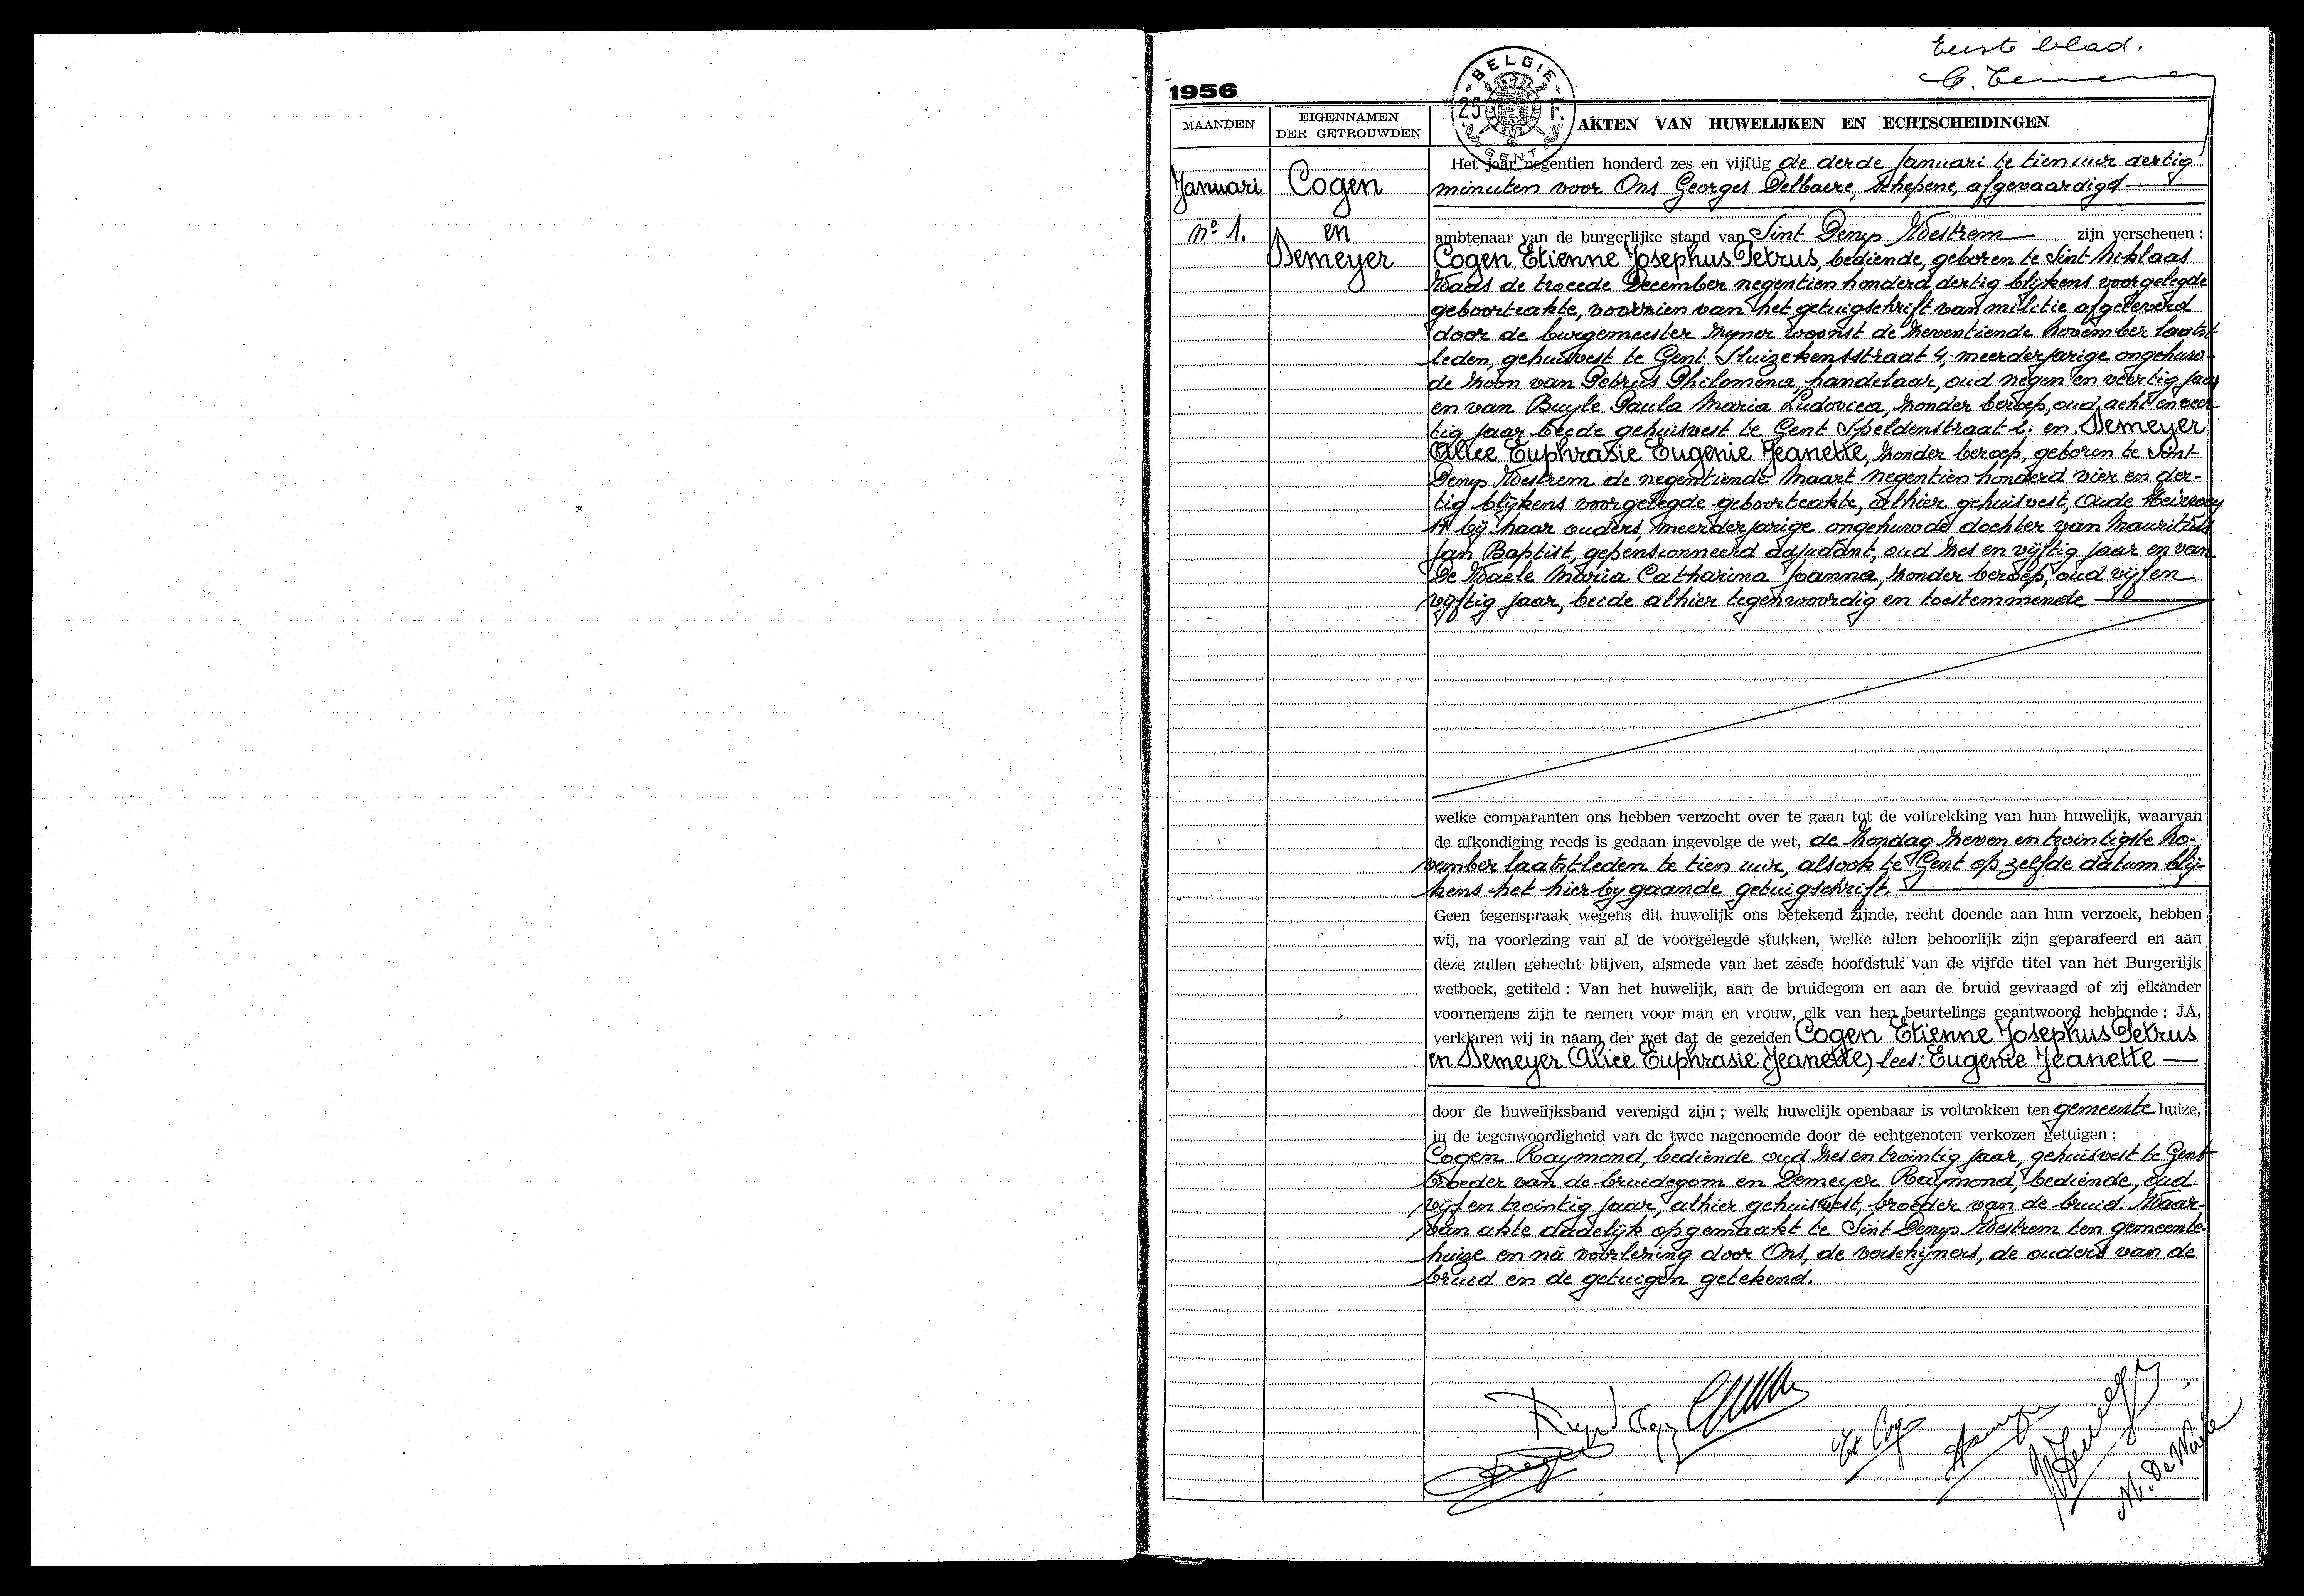 Eerste blad.
1956
BELGIE
25 F.
GENT
MAANDEN
EIGENNAMEN
DER GETROUWDEN
AKTEN VAN HUWELIJKEN EN ECHTSCHEIDINGEN
Januari
nº 1.
Cogen
en
Demeyer
Het jaar negentien honderd zes en vijftig de derde Januari te tien uur dertig
minuten voor Ons Georges Delbaere, Schepene, afgevaardigd
ambtenaar van de burgerlijke stand van Sint Denys Westrem zijn verschenen :
Cogen Etienne Josephus Petrus, bediende, geboren te Sint-Niklaas
Waas de tweede December negentien honderd dertig blijkens voorgelegde
geboorteakte, voorzien van het getuigschrift van militie afgeleverd
door de burgemeester zijner woonst de zeventiende November laatst-
leden, gehuisvest te Gent Sluizekensstraat 4, meerderjarige ongehuw-
de zoon van Petrus Philomena, handelaar, oud negen en veertig jaar
en van Buyle Paula Maria Ludovica, zonder beroep, oud acht en veer-
tig jaar beide gehuisvest te Gent Speldenstraat 2. en Demeyer
Alice Euphrasie Eugenie Jeanette, zonder beroep, geboren te Sint
Denys Westrem de negentiende Maart negentien honderd vier en der-
tig blijkens voorgelegde geboorteakte, alhier gehuisvest, Oude Heirweg
bij haar ouders, meerderjarige ongehuwde dochter van Mauritius
Jan Baptist, gepensionneerd adjudant, oud zes en vijftig jaar en van
De Waele Maria Catharina Joanna, zonder beroep, oud vijf en
vijftig jaar, beide alhier tegenwoordig en toestemmende
welke comparanten ons hebben verzocht over te gaan tot de voltrekking van hun huwelijk, waarvan
de afkondiging reeds is gedaan ingevolge de wet, de zondag zeven en twintigste No-
vember laatstleden te tien uur, alsook te Gent op zelfde datum blij-
kens het hierbygaande getuigschrift.
Geen tegenspraak wegens dit huwelijk ons betekend zijnde, recht doende aan hun verzoek, hebben
wij, na voorlezing van al de voorgelegde stukken, welke allen behoorlijk zijn geparafeerd en aan
deze zullen gehecht blijven, alsmede van het zesde hoofdstuk van de vijfde titel van het Burgerlijk
wetboek, getiteld : Van het huwelijk, aan de bruidegom en aan de bruid gevraagd of zij elkander
voornemens zijn te nemen voor man en vrouw, elk van hen beurtelings geantwoord hebbende : JA,
verklaren wij in naam der wet dat de gezeiden Cogen Etienne Josephus Petrus
en Demeyer Alice Euphrasie (Jeanette) lees: Eugenie Jeanette
door de huwelijksband verenigd zijn ; welk huwelijk openbaar is voltrokken ten gemeente huize,
in de tegenwoordigheid van de twee nagenoemde door de echtgenoten verkozen getuigen :
Cogen Raymond, bediende oud zes en twintig jaar, gehuisvest te Gent
broeder van de bruidegom en Demeyer Raymond, bediende, oud
vijf en twintig jaar, alhier gehuisvest, broeder van de bruid. Waar-
van akte dadelijk opgemaakt te Sint Denys Westrem ten gemeente-
huize en na voorlezing door Ons, de verschijners, de ouders van de
bruid en de getuigen getekend.
M. De Waele